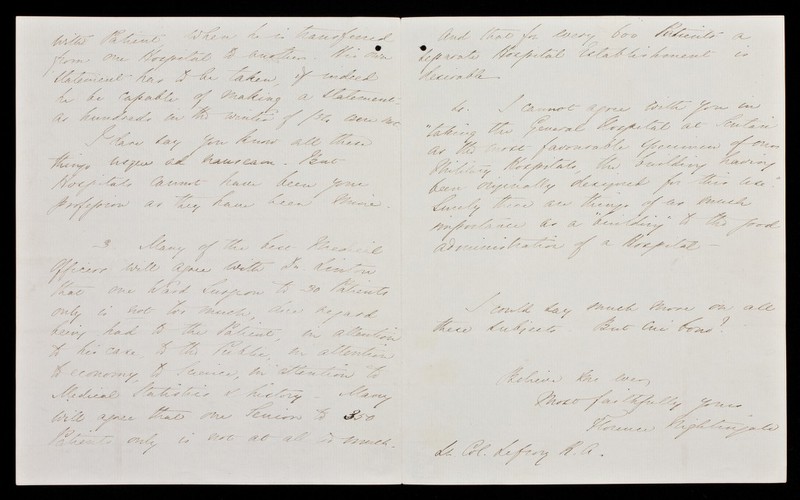 with Patient when he is transferred
from one Hospital to another. His own
Statement has to be taken, if indeed
he be capable of making a statement
as hundreds in the winter of were not
I dare say you know all these
things usque ad nauseam. But
Hospitals cannot have been your
profession as they have been mine.
3 Many of the best Medical
Officers will agree with Dr Linton
that one Ward Surgeon to 30 Patients
only is not too much, due regard
being had to the Patient, in attention
to his case, to the Public, in attention
to economy, to Science, in attention to
Medical Statistics & history - Many
will agree that one Senior to 300
Patients only is not at all too much.
And that for every 600 Patients a
separate Hospital Establishment is
desirable.
I cannot agree with you in
"taking the General Hospital at Scutari
as the most favourable specimen of our
Military Hospitals, the building having
been originally designed for this use."
Surely there are things of as much
importance as a "building" to the good
administration of a Hospital -
I could say much more on all
these subjects. But cui bono?
Believe me ever
Most faithfully yours
Florence Nightingale
Lt Col. Lefroy R.A.